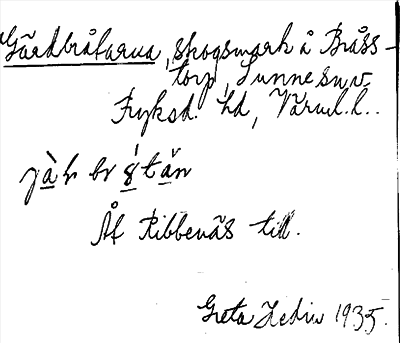 Gärdbråtarna, skogsmark å Bråss-
torp, Sunne sn, v.
Fryksd. hd, Värml. l..
Åt Ribbenäs till.
Greta Hedin 1935.